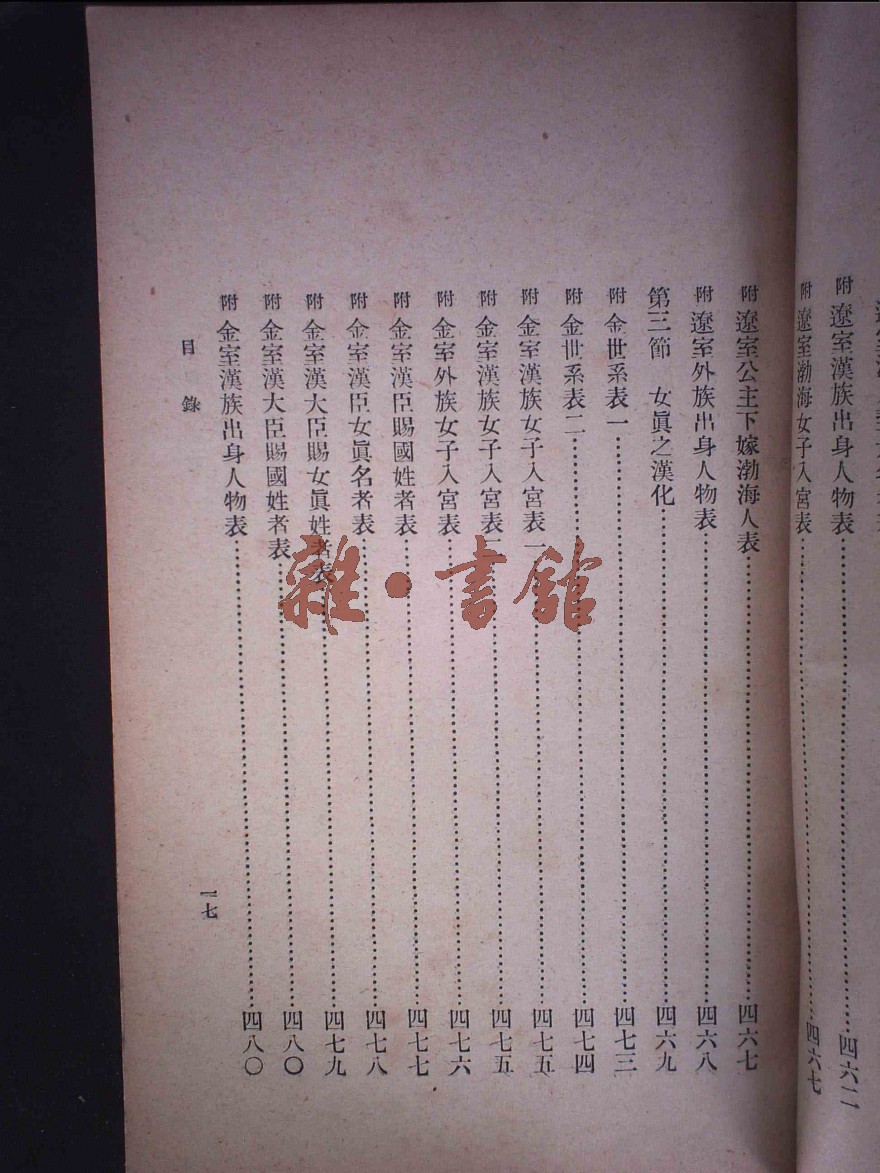 附 遼室漢族出身人物表……四六二
附 遼室渤海女子入宮表……四六七
附 遼室公主下嫁渤海人表……四六七
附 遼室外族出身人物表……四六八
第三節 女眞之漢化……四六九
附 金世系表一……四七三
附 金世系表二……四七四
附 金室漢族女子入宮表一……四七五
附 金室漢族女子入宮表二……四七五
附 金室外族女子入宮表……四七六
附 金室漢臣賜國姓者表……四七七
附 金室漢臣女眞名者表……四七八
附 金室漢大臣賜女眞姓者表……四七九
附 金室漢大臣賜國姓者表……四八〇
附 金室漢族出身人物表……四八〇
目錄
一七
雜·書館